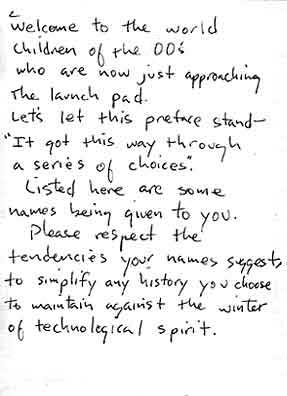 Welcome to the world
children of the 00s
who are now just approaching
the launch pad.
Let's let this preface stand—
"It got this way through
a series of choices".
Listed here are some
names being given to you.
Please respect the
tendencies your names suggest,
to simplify any history you choose
to maintain against the winter
of technological spirit.